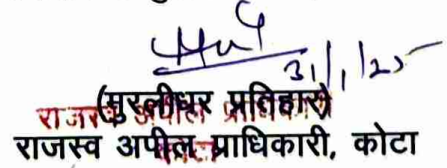 31/1/25
(मुरलीधर प्रतिहार)
राजस्व अपील प्राधिकारी, कोटा